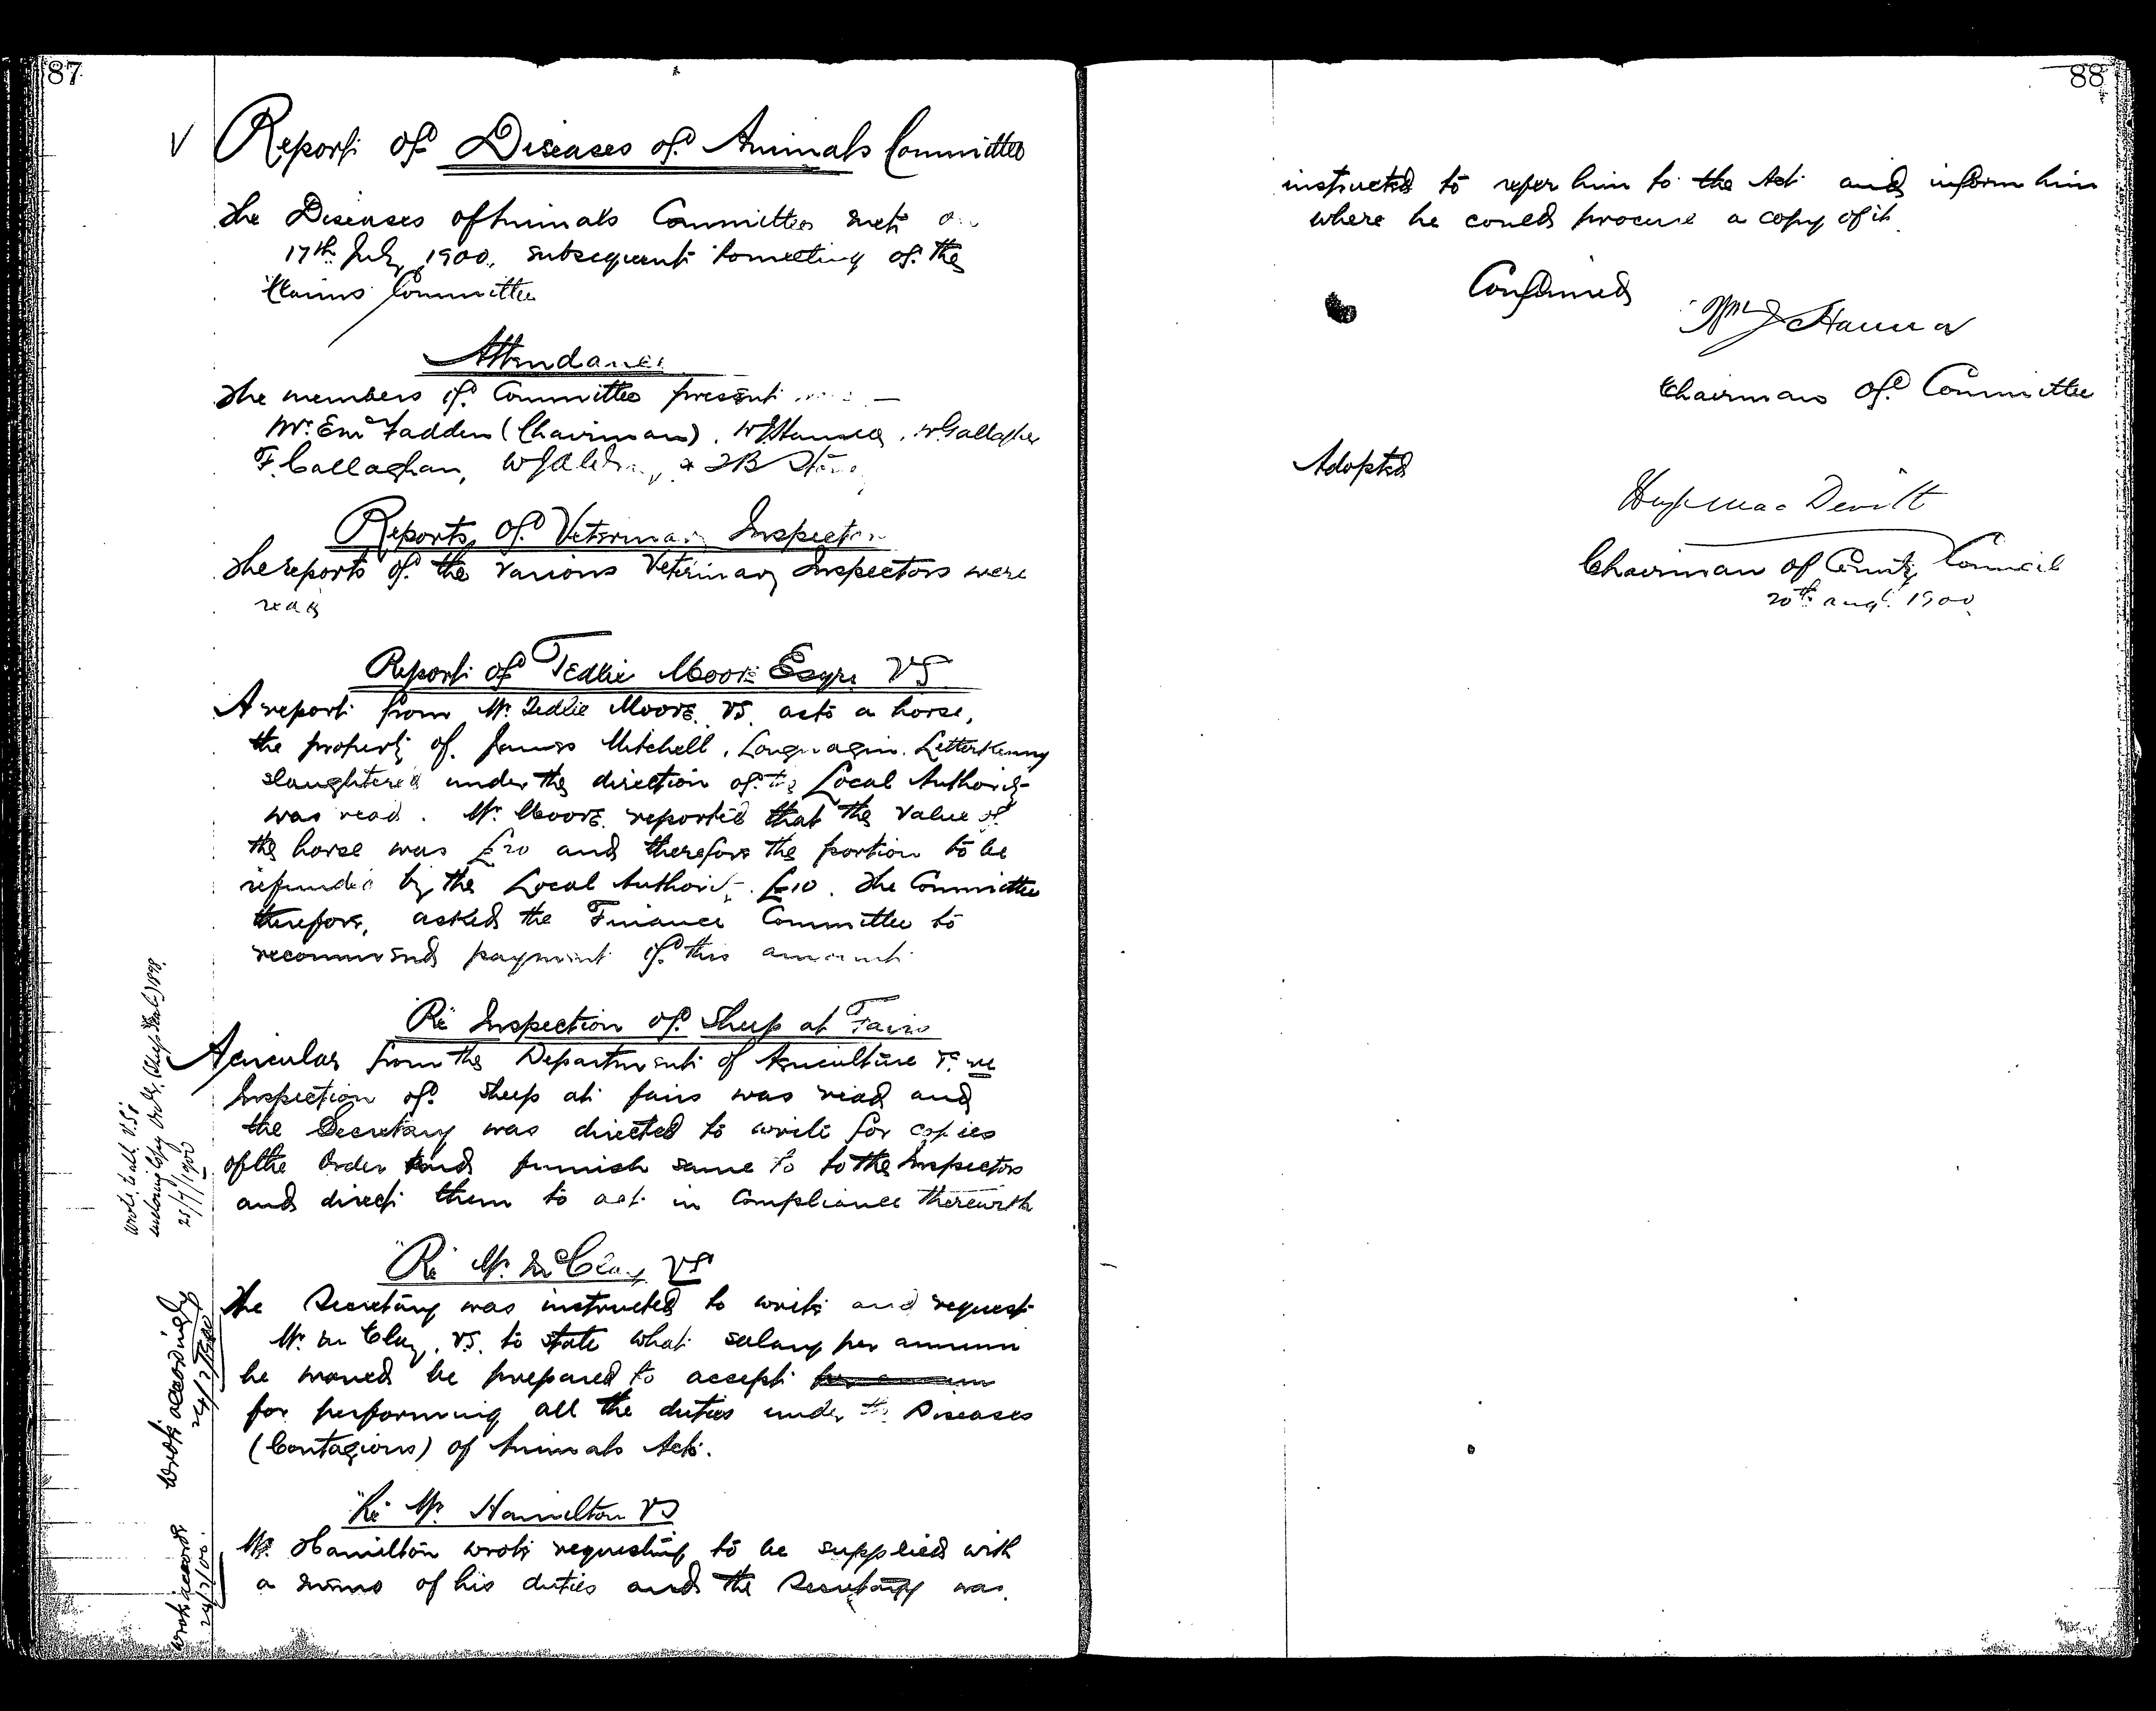 87
V Report of Diseases of Animals Committee
The Diseases of Animals Committee met on
17th July, 1900, subsequent to meeting of the
Claims Committee
Attendance
The members of Committee present
Mr. E McFadden (Chairman), W J Hanna, W Gallagher
F. Callaghan, &
Reports of Veterinary Inspectors
The reports of the various Veterinary Inspectors were
read
Report of Tedlie Moore Esqre VS
A report from Mr. Tedlie Moore VS. as to a horse,
the property of James Mitchell, Letterkenny
slaughtered under the direction of the Local Authority
was read. Mr. Moore reported that the value of
the horse was £20 and therefore the portion to be
refunded by the Local Authority £10. The Committee
therefore, asked the Finance Committee to
recommend payment of this amount
Re Inspection of Sheep at Fairs
A circular from the Department of Agriculture re
Inspection of Sheep at fairs was read and
the Secretary was directed to write for copies
of the Order and furnish same to to the Inspectors
and direct them to act in compliance therewith
Wrote to all V.S.
enclosing Copy Order (Sheep Scab) 1898.
25/7/1900
"Re" Mr. McClay VS
The Secretary was instructed to write and request
Mr. McClay, VS. to state what salary per annum
he would be prepared to accept per annum
for performing all the duties under the Diseases
(Contagious) of Animals Acts.
Wrote accordingly
24/7/1900
"Re" Mr. Hamilton VS
Mr. Hamilton wrote requesting to be supplied with
a memo of his duties and the Secretary was
Wrote accords
24/7/00.
88
instructed to refer him to the Act and inform him
where he could procure a copy of it.
Confirmed
Wm J Hanna
Chairman of Committee
Adopted
Hugh Mac Devitt
Chairman of County Council
20th Augt. 1900